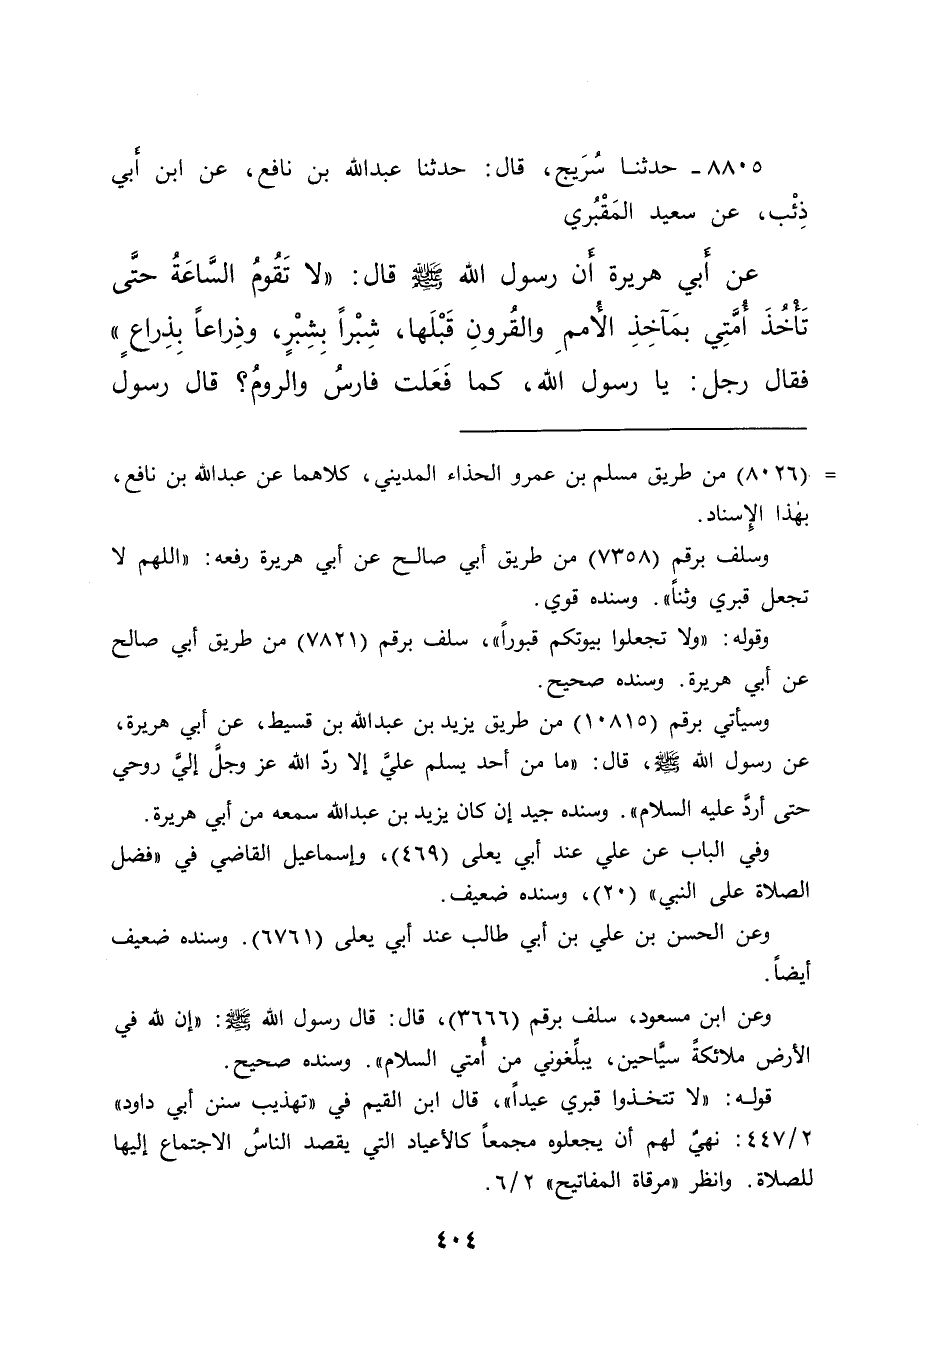 ٨٨٠٥ـ حدثنا سُرَيج، قال: حدثنا عبدالله بن نافع، عن ابن أَبي
ذِئْب، عن سعيد المَقْبُري
عن أَبي هريرة أَن رسول الله ﷺ قال: «لا تَقُومُ السَّاعَةُ حتَّى
تَأْخُذَ أُمَّتِي بِمَآخِذِ الأُممِ والقُرونِ قَبْلَها، شِبْراً بِشِبْرٍ، وذِراعاً بِذِراعٍ»
فقال رجل: يا رسول الله، كما فَعَلت فارسُ والرومُ؟ قال رسول
= (٨٠٢٦) من طريق مسلم بن عمرو الحذاء المديني، كلاهما عن عبدالله بن نافع،
بهٰذا الإسناد.
وسلف برقم (٧٣٥٨) من طريق أبي صالح عن أبي هريرة رفعه: «اللهم لا
تجعل قبري وثناً». وسنده قوي.
وقوله: «ولا تجعلوا بيوتكم قبوراً»، سلف برقم (٧٨٢١) من طريق أبي صالح
عن أبي هريرة. وسنده صحيح.
وسيأتي برقم (١٠٨١٥) من طريق يزيد بن عبدالله بن قسيط، عن أبي هريرة،
عن رسول الله ﷺ، قال: «ما من أحد يسلم عليَّ إلا ردّ الله عز وجلَّ إليَّ روحي
حتى أردَّ عليه السلام». وسنده جيد إن كان يزيد بن عبدالله سمعه من أبي هريرة.
وفي الباب عن علي عند أبي يعلى (٤٦٩)، وإسماعيل القاضي في «فضل
الصلاة على النبي» (٢٠)، وسنده ضعيف.
وعن الحسن بن علي بن أبي طالب عند أبي يعلى (٦٧٦١). وسنده ضعيف
أيضاً.
وعن ابن مسعود، سلف برقم (٣٦٦٦)، قال: قال رسول الله ﷺ: «إن لله في
الأرض ملائكةً سيَّاحين، يبلِّغوني من أُمتي السلام». وسنده صحيح.
قوله: «لا تتخذوا قبري عيداً»، قال ابن القيم في «تهذيب سنن أبي داود»
٤٤٧/٢: نهيٌ لهم أن يجعلوه مجمعاً كالأعياد التي يقصد الناسُ الاجتماع إليها
للصلاة. وانظر «مرقاة المفاتيح» ٦/٢.
٤٠٤